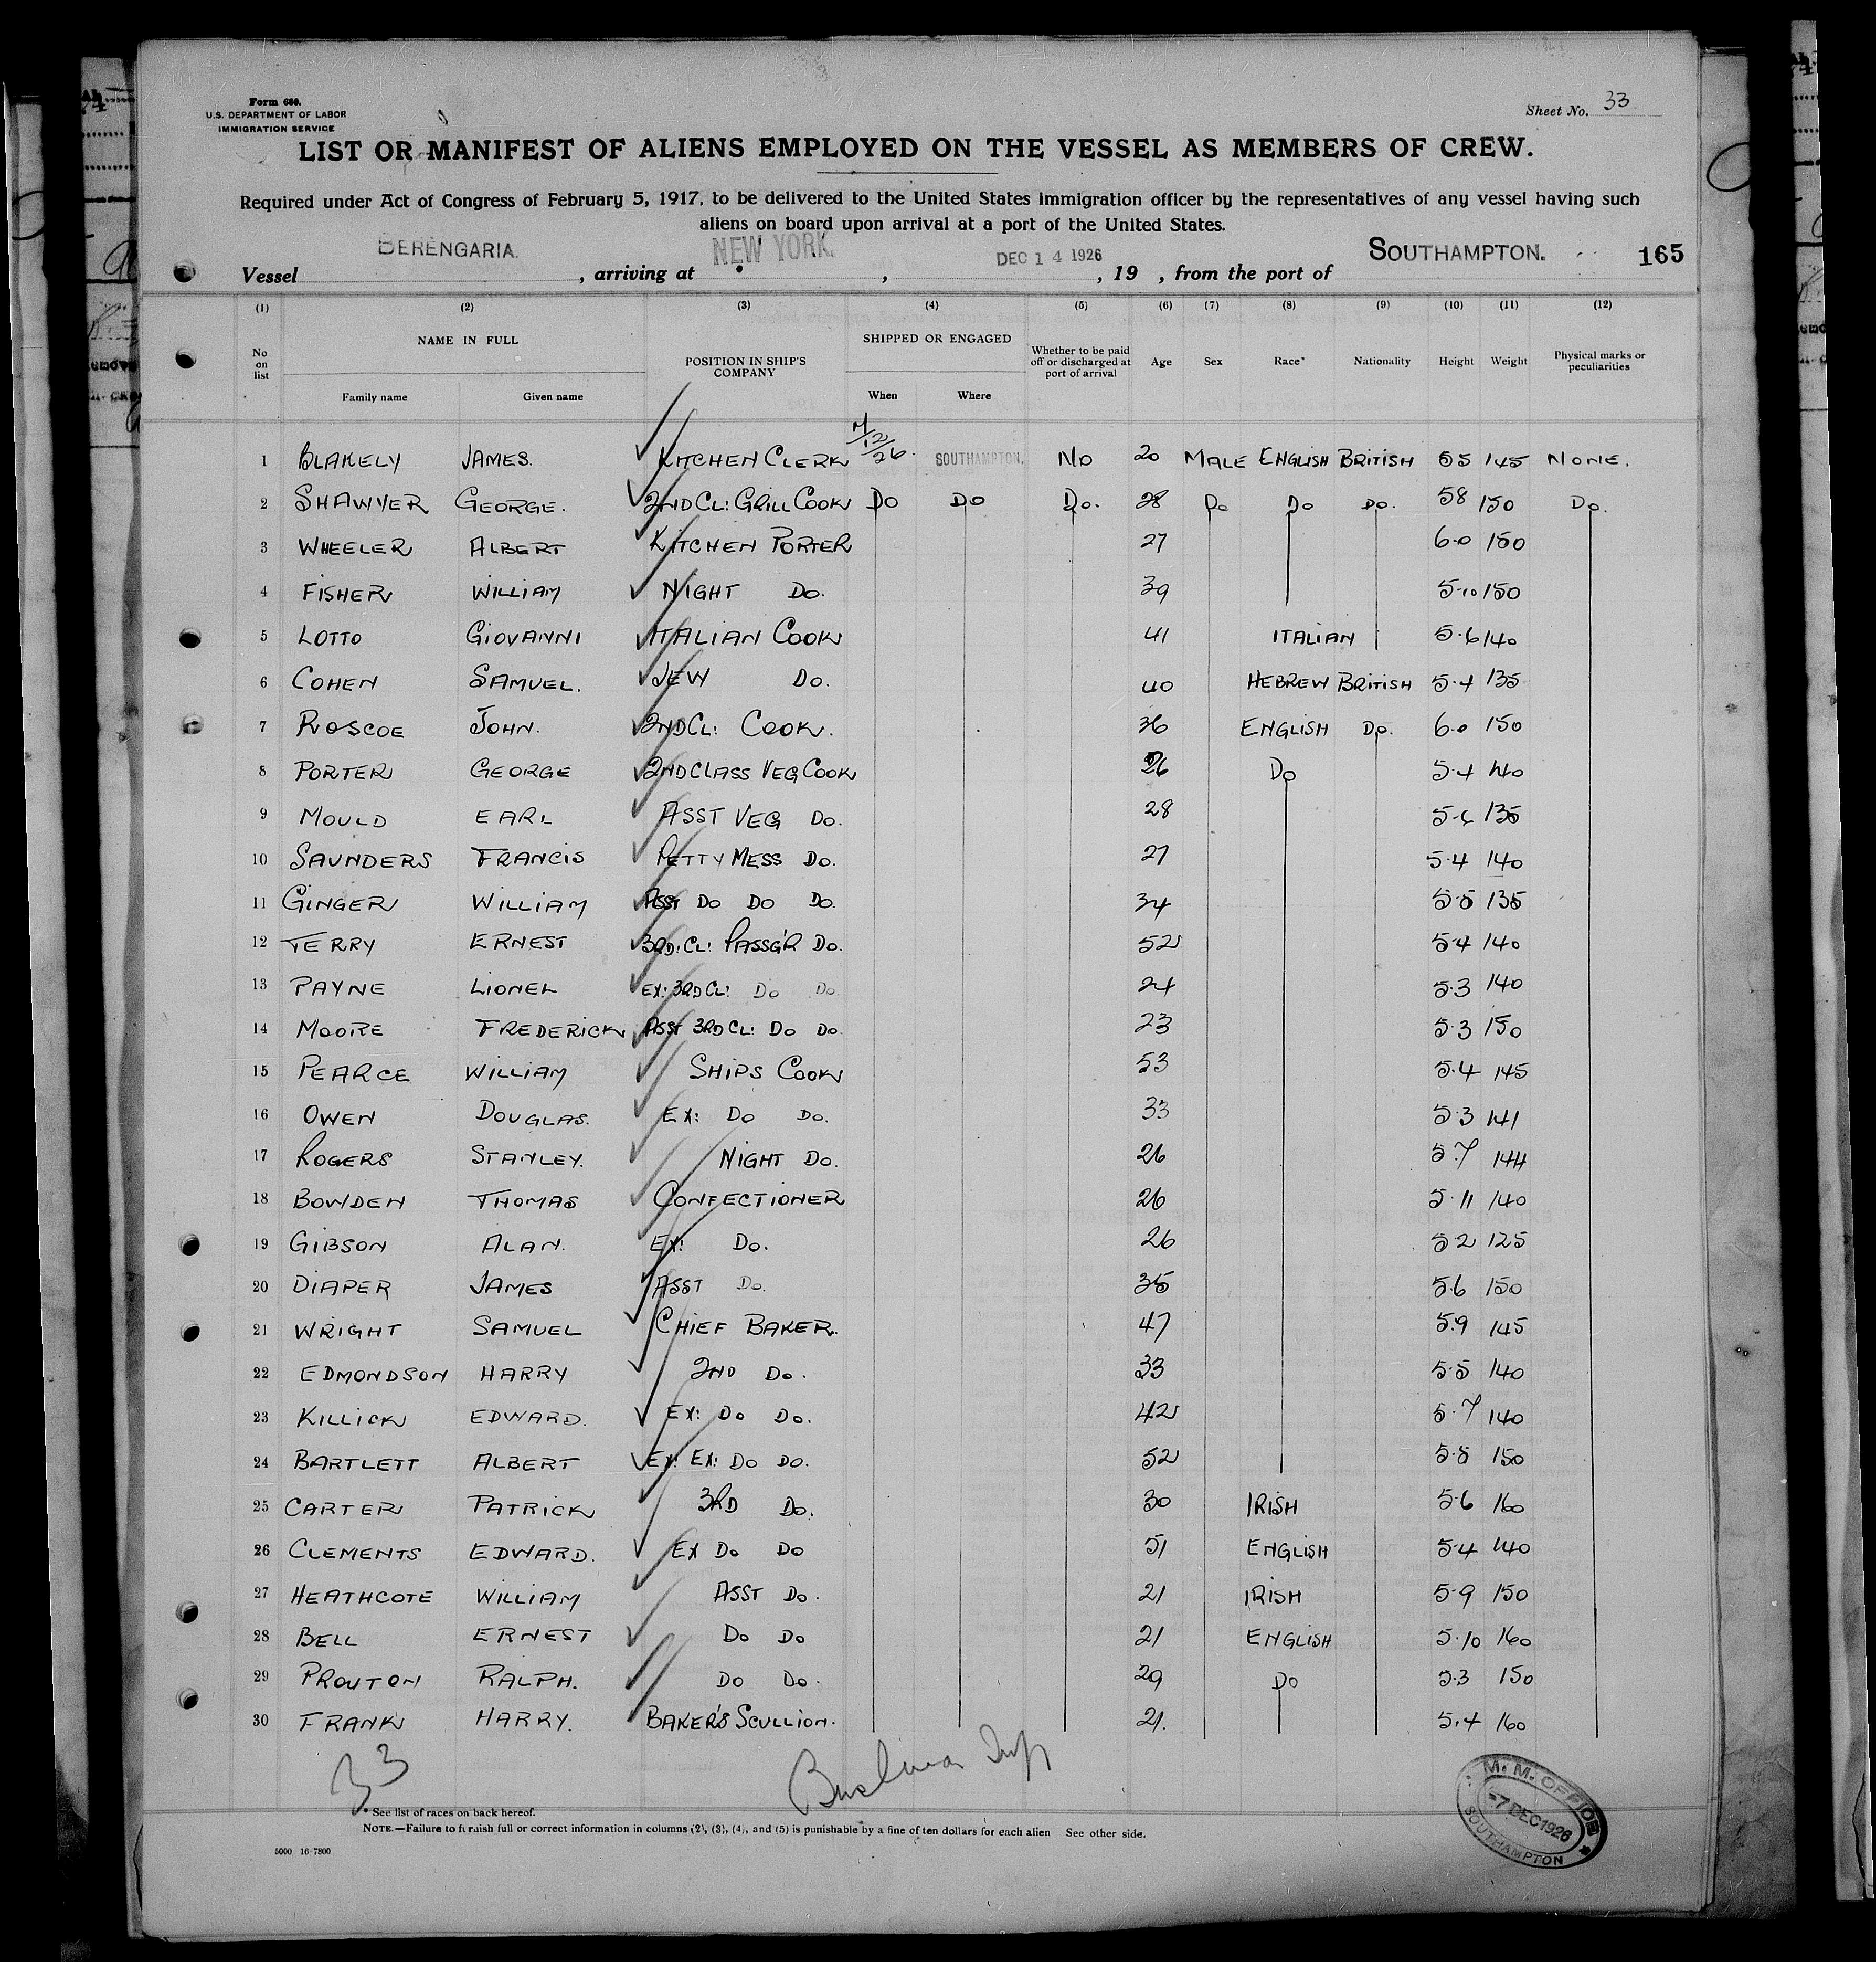 Form 680.
U.S. DEPARTMENT OF LABOR
IMMIGRATION SERVICE
Sheet No. 33
LIST OR MANIFEST OF ALIENS EMPLOYED ON THE VESSEL AS MEMBERS OF CREW.
Required under Act of Congress of February 5, 1917, to be delivered to the United States immigration officer by the representatives of any vessel having such
aliens on board upon arrival at a port of the United States.
Vessel BERENGARIA. , arriving at NEW YORK. , DEC 14 1926 , 19 , from the port of SOUTHAMPTON. 165
(1) (2) (3) (4) (5) (6) (7) (8) (9) (10) (11) (12)
No on list NAME IN FULL Family name Given name POSITION IN SHIP'S COMPANY SHIPPED OR ENGAGED When Where Whether to be paid off or discharged at port of arrival Age Sex Race* Nationality Height Weight Physical marks or peculiarities
1 BLAKELY JAMES. KITCHEN CLERK 7/12/26. SOUTHAMPTON. NO 20 MALE ENGLISH BRITISH 55 145 NONE.
2 SHAWYER GEORGE. 2ND CL: GRILL COOK DO DO DO. 28 DO DO DO. 58 150 DO.
3 WHEELER ALBERT KITCHEN PORTER 27 6.0 150
4 FISHER WILLIAM NIGHT DO. 39 5.10 150
5 LOTTO GIOVANNI ITALIAN COOK 41 ITALIAN 5.6 140
6 COHEN SAMUEL. JEW DO. 40 HEBREW BRITISH 5.4 135
7 ROSCOE JOHN. 2ND CL: COOK. 36 ENGLISH DO. 6.0 150
8 PORTER GEORGE 2ND CLASS VEG COOK 26 DO 5.4 140
9 MOULD EARL ASST VEG DO. 28 5.6 135
10 SAUNDERS FRANCIS PETTY MESS DO. 27 5.4 140
11 GINGER WILLIAM ASST DO DO DO. 34 5.5 135
12 TERRY ERNEST 3RD: CL: PASSG'R DO. 52 5.4 140
13 PAYNE LIONEL EX: 3RD CL: DO DO. 24 5.3 140
14 MOORE FREDERICK ASST 3RD CL: DO DO. 23 5.3 150
15 PEARCE WILLIAM SHIPS COOK 53 5.4 145
16 OWEN DOUGLAS. EX: DO DO. 33 5.3 141
17 ROGERS STANLEY. NIGHT DO. 26 5.7 144
18 BOWDEN THOMAS CONFECTIONER 26 5.11 140
19 GIBSON ALAN. EX: DO. 26 5 2 125
20 DIAPER JAMES ASST DO. 35 5.6 150
21 WRIGHT SAMUEL CHIEF BAKER. 47 5.9 145
22 EDMONDSON HARRY 2ND DO. 33 5.5 140
23 KILLICK EDWARD. EX: DO DO. 42 5.7 140
24 BARTLETT ALBERT EX: EX: DO DO. 52 5.5 150
25 CARTER PATRICK 3RD DO. 30 IRISH 5.6 160
26 CLEMENTS EDWARD. EX DO DO 51 ENGLISH 5.4 140
27 HEATHCOTE WILLIAM ASST DO. 21 IRISH 5.9 150
28 BELL ERNEST DO DO 21 ENGLISH 5.10 160
29 PROUTON RALPH. DO DO. 29 DO 5.3 150
30 FRANK HARRY. BAKER'S SCULLION. 21. 5.4 160
33
* See list of races on back hereof.
NOTE.—Failure to furnish full or correct information in columns (2), (3), (4), and (5) is punishable by a fine of ten dollars for each alien See other side.
5000 16-7800
M. M. OFFICE
-7 DEC 1926
SOUTHAMPTON